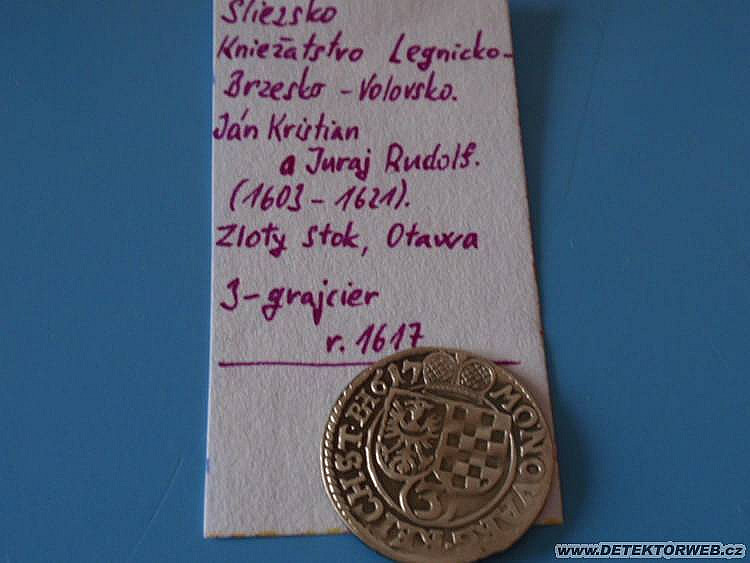 Sliezsko
Kniežatstvo Legnicko-
Brzesko - Volovsko.
Ján Kristian
a Juraj Rudolf.
(1603 - 1621).
Zloty Stok, Otawa
3-grajcier
r. 1617
617 MONO
3
www.DETEKTORWEB.cz